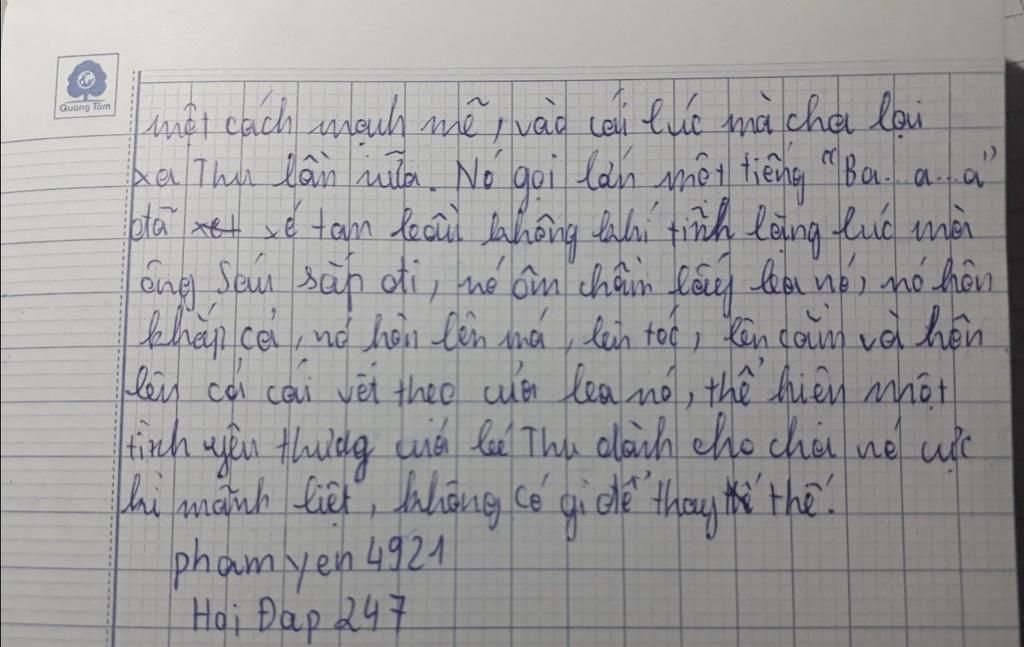 Quang Tâm
một cách mạnh mẽ, vào cái lúc mà cha lại
xa Thu lần nữa. Nó gọi lớn một tiếng "Ba..a..a"
đã xet xé tan bầu không khí tĩnh lặng lúc mà
ông Sáu sắp đi, nó ôm chầm lấy ba nó, nó hôn
khắp cả, nó hôn lên má, lên tóc, lên cằm và hôn
lên cả cái vết theo của ba nó, thể hiện một
tình yêu thương của bé Thu dành cho cha nó cực
kì mãnh liệt, không có gì để thay thế.
phamyen4921
Hoi Đap 247